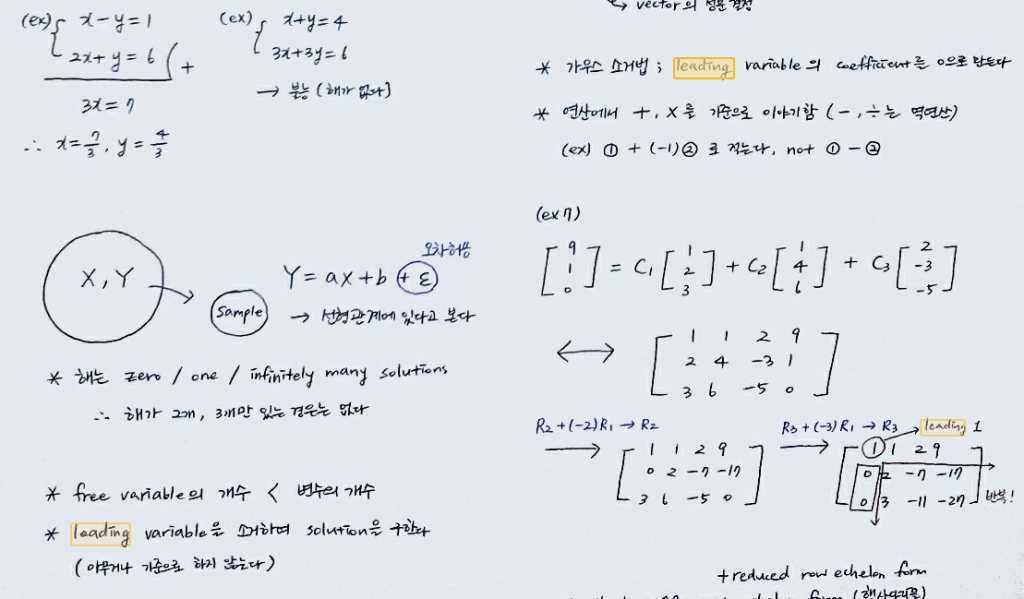 (ex) x - y = 1
2x + y = 6
+
3x = 7
∴ x = 7/3, y = 4/3
(ex) x + y = 4
3x + 3y = 6
→ 불능 (해가 없다)
X, Y
Sample
오차허용
Y = ax + b + ε
→ 선형관계에 있다고 본다
* 해는 zero / one / infinitely many solutions
∴ 해가 2개, 3개만 있는 경우는 없다
* free variable의 개수 < 변수의 개수
* leading variable을 소거하며 solution을 구한다
(아무거나 기준으로 하지 않는다)
↳ vector의 성분 결정
* 가우스 소거법 ; leading variable의 coefficient를 0으로 만든다
* 연산에서 +, × 를 기준으로 이야기함 (-, ÷는 역연산)
(ex) ① + (-1)② 로 적는다, not ① - ②
(ex 7)
[9 1 0] = C₁ [1 2 3] + C₂ [1 4 6] + C₃ [2 -3 -5]
↔
1 1 2 9
2 4 -3 1
3 6 -5 0
R₂ + (-2)R₁ → R₂
1 1 2 9
0 2 -7 -17
3 6 -5 0
R₃ + (-3)R₁ → R₃
leading 1
1 1 2 9
0 2 -7 -17
0 3 -11 -27
반복!
+ reduced row echelon form
form (행사다리꼴)